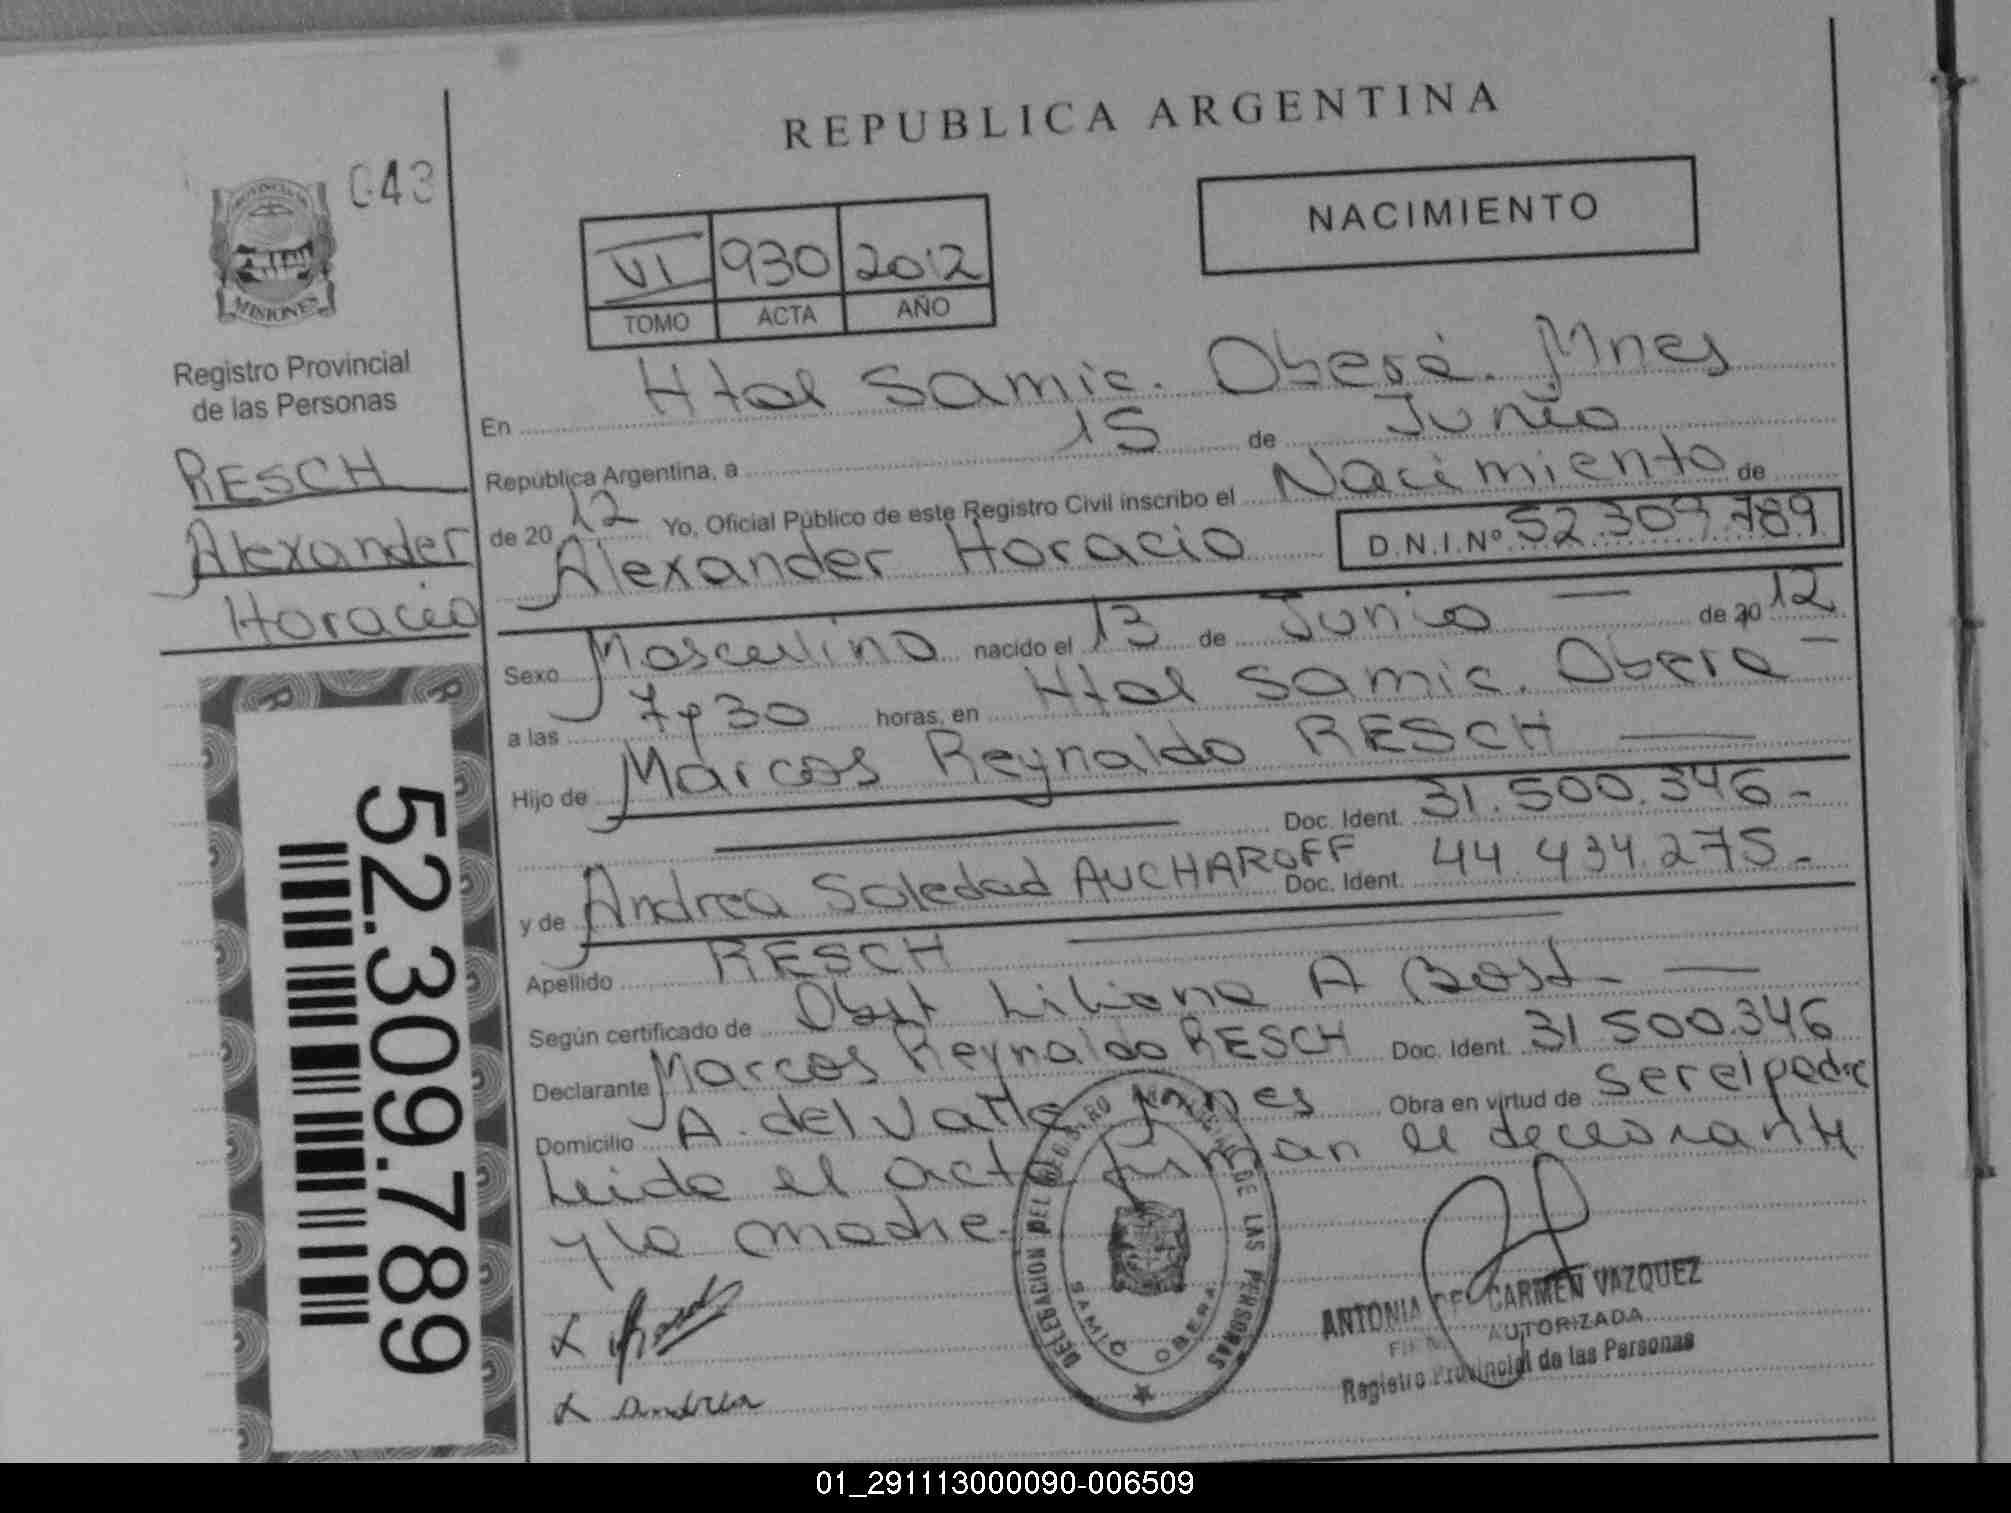 REPUBLICA ARGENTINA
043
NACIMIENTO
VI 930 2012
TOMO ACTA AÑO
MISIONES
Registro Provincial
de las Personas
RESCH
Alexander
Horacio
En Htal Samic. Oberá. Mnes
República Argentina, a 15 de Junio
de 20 12 Yo, Oficial Público de este Registro Civil inscribo el Nacimiento de
Alexander Horacio D.N.I.Nº 52.309.789
Sexo Masculino nacido el 13 de Junio de 20 12
a las 7y30 horas, en Htal Samic. Obera
Hijo de Marcos Reynaldo RESCH
Doc. Ident. 31.500.346-
y de Andrea Soledad AUCHAROFF Doc. Ident. 44.434.275-
Apellido RESCH
Según certificado de Obst Liliana A Bost-
Declarante Marcos Reynaldo RESCH Doc. Ident. 31 500.346
Domicilio A. del Valle Mnes Obra en virtud de ser el padre
Leida el acta firman el declarante
y la madre-
52.309.789
DELEGACION DEL REGISTRO PROVINCIAL DE LAS PERSONAS
SAMIC OBERA
x Andrea
ANTONIA DEL CARMEN VAZQUEZ
AUTORIZADA
Registro Provincial de las Personas
01_291113000090-006509